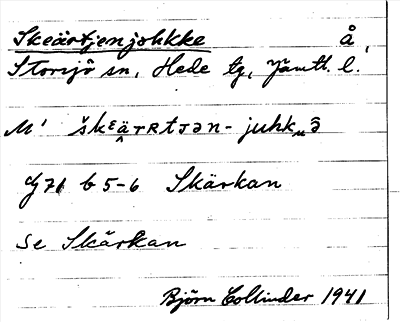 Skeärtjenjohkke å,
Storsjö sn, Hede tg, Jämtl. l.
M' škᵋä̭ᴛʀtᴊən-juhk„ə̂
Gj 71 b 5-6 Skärkan
Se Skärkan
Björn Collinder 1941